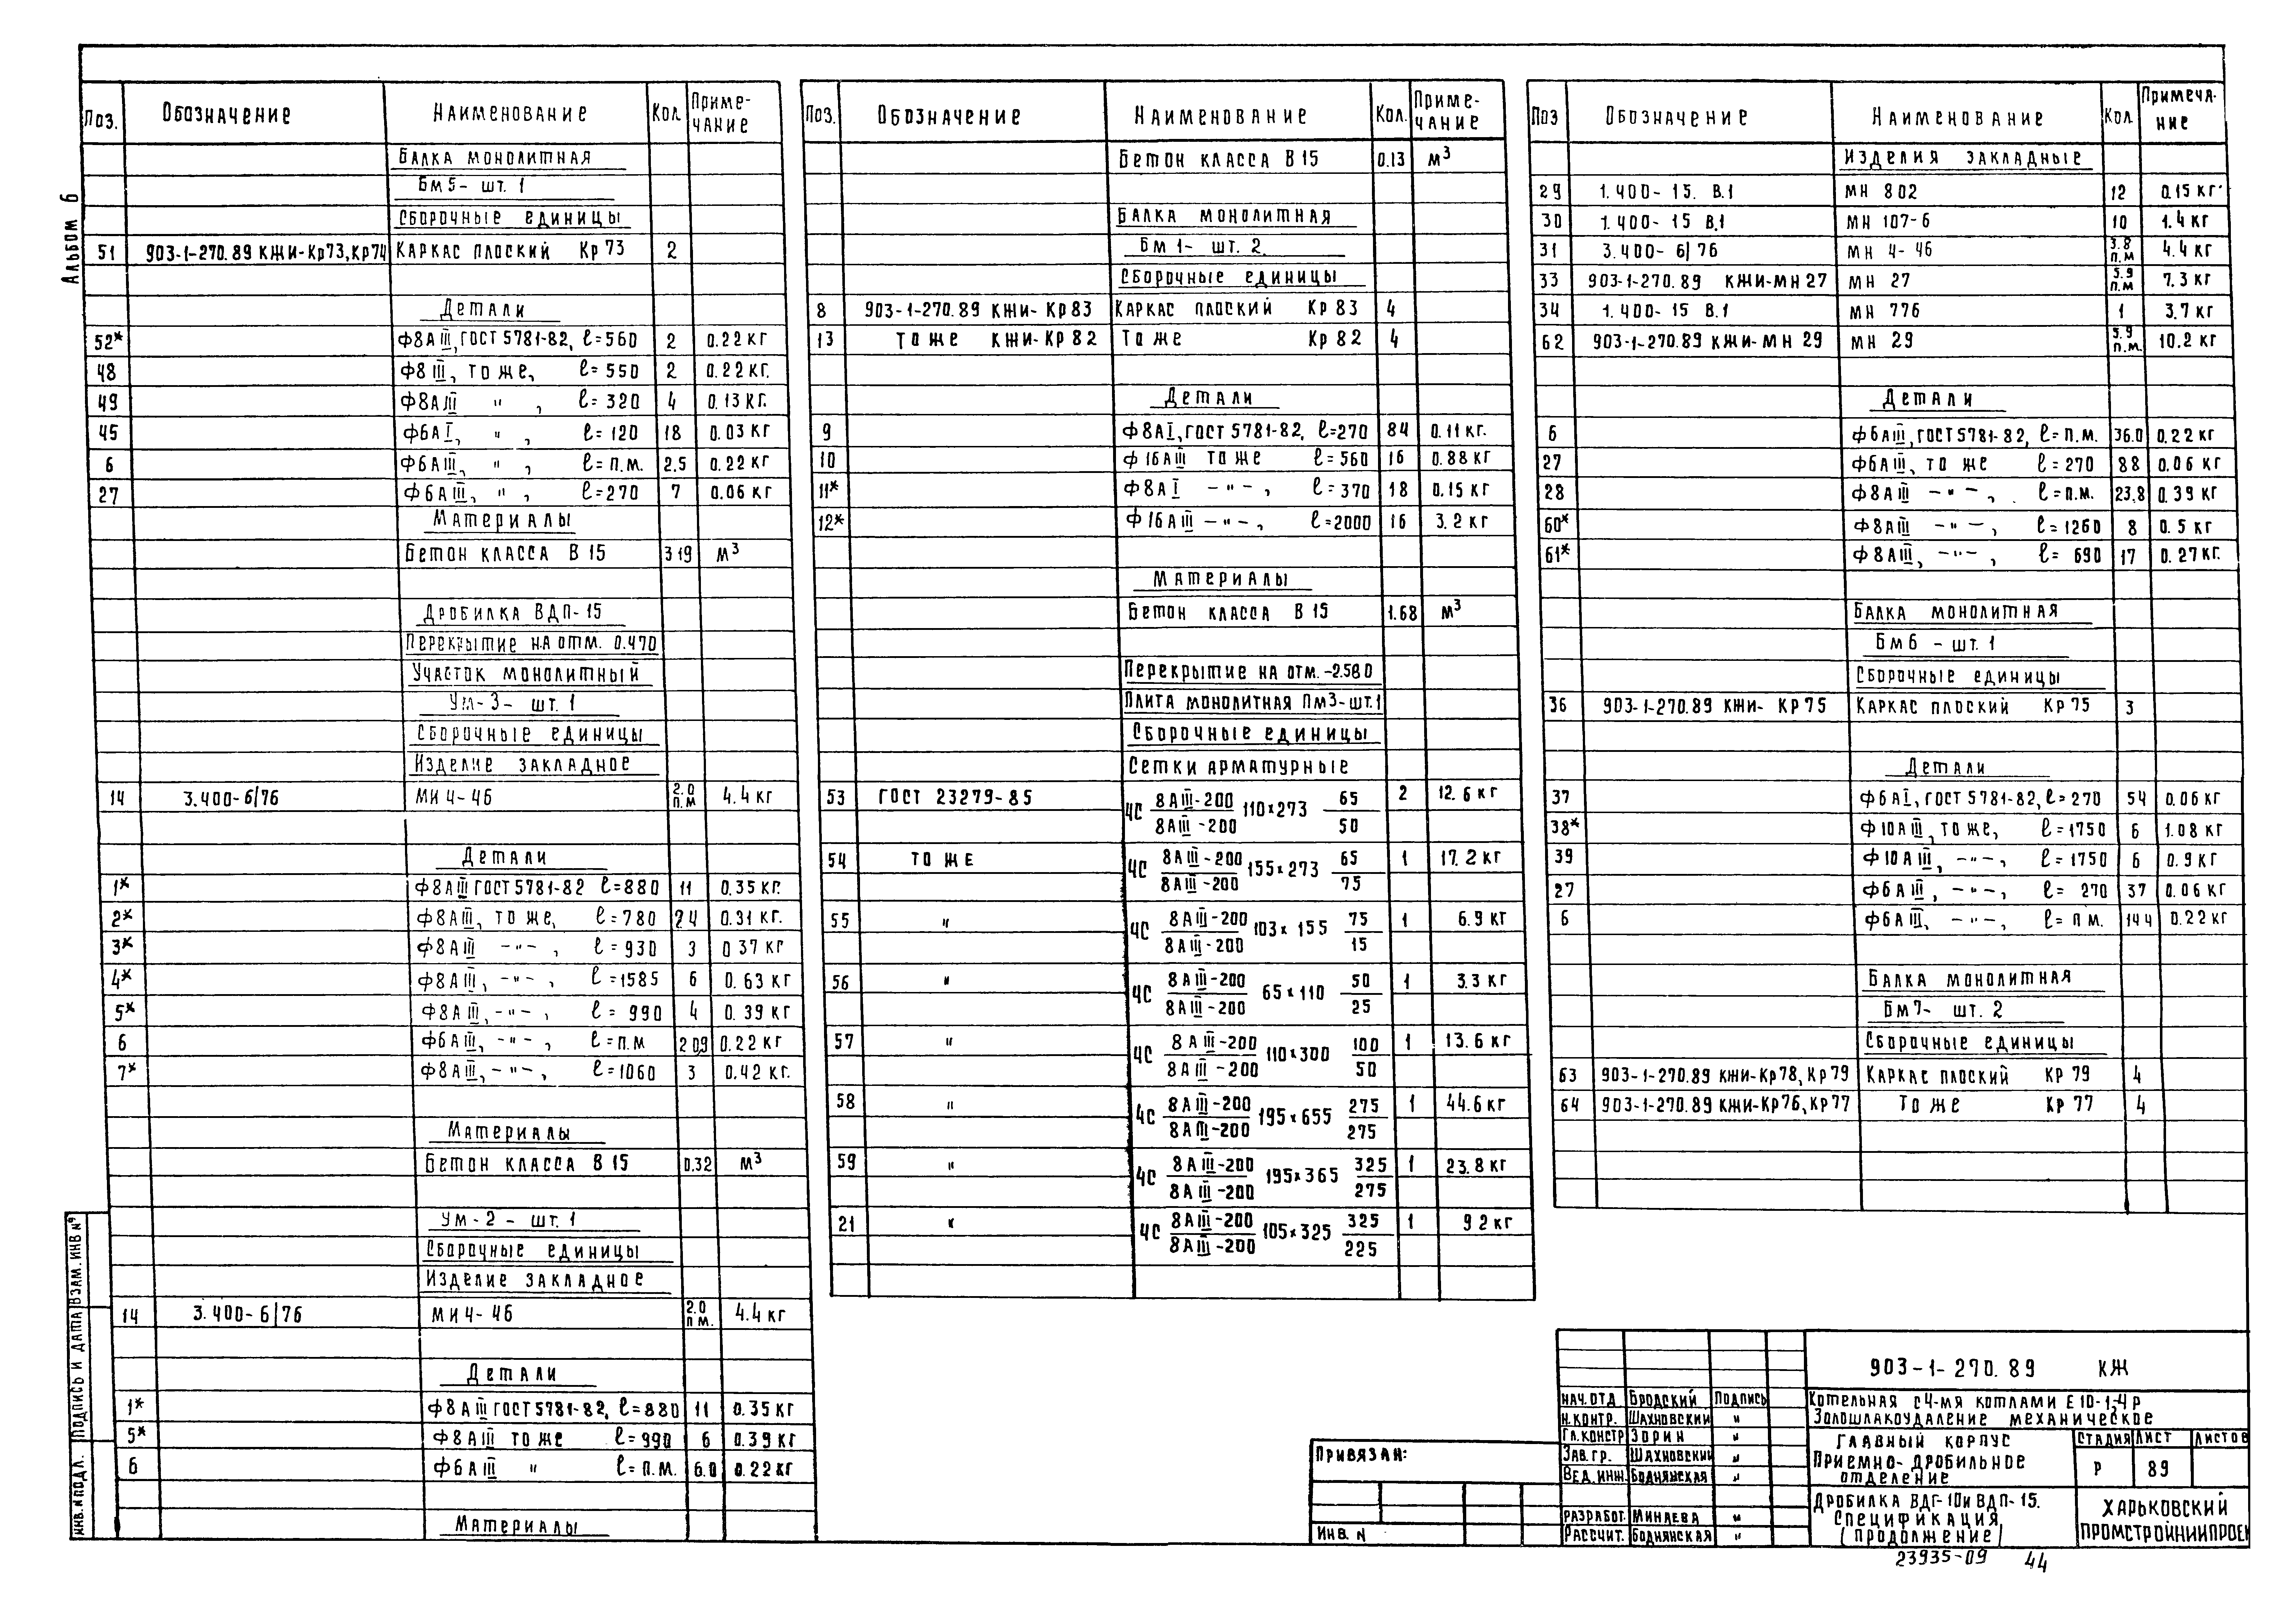 Альбом 6
Поз. Обозначение Наименование Кол. Приме-чание
Балка монолитная
Бм5- шт. 1
Сборочные единицы
51 903-1-270.89 КЖИ-Кр73,Кр74 Каркас плоский Кр73 2
Детали
52* Ф8АIII, ГОСТ 5781-82, ℓ=560 2 0.22 кг
48 Ф8III, то же, ℓ=550 2 0.22 кг.
49 Ф8АIII " , ℓ=320 4 0.13 кг.
45 Ф6АI, " , ℓ=120 18 0.03 кг
6 Ф6АIII, " , ℓ=п.м. 2.5 0.22 кг
27 Ф6АIII, " , ℓ=270 7 0.06 кг
Материалы
Бетон класса В 15 319 м³
Дробилка ВДП-15
Перекрытие на отм. 0.470
Участок монолитный
Ум-3- шт. 1
Сборочные единицы
Изделие закладное
14 3.400-6/76 МИ 4-46 2.0 п.м 4.4 кг
Детали
1* Ф8АIII ГОСТ 5781-82 ℓ=880 11 0.35 кг.
2* Ф8АIII, то же, ℓ=780 24 0.31 кг.
3* Ф8АIII -"- , ℓ=930 3 0 37 кг
4* Ф8АIII, -"- , ℓ=1585 6 0.63 кг
5* Ф8АIII, -"- , ℓ=990 4 0.39 кг
6 Ф6АIII, -"- , ℓ=п.м 209 0.22 кг
7* Ф8АIII, -"- , ℓ=1060 3 0.42 кг.
Материалы
Бетон класса В 15 0.32 м³
Ум-2- шт. 1
Сборочные единицы
Изделие закладное
14 3.400-6/76 МИ4-46 2.0 п.м. 4.4 кг
Детали
1* Ф8АIII ГОСТ 5781-82, ℓ=880 11 0.35 кг
5* Ф8АIII то же ℓ=990 6 0.39 кг
6 Ф6АIII " ℓ=п.м. 6.0 0.22 кг
Материалы
Поз. Обозначение Наименование Кол. Приме-чание
Бетон класса В 15 0.13 м³
Балка монолитная
Бм 1- шт. 2
Сборочные единицы
8 903-1-270.89 КЖИ-КР83 Каркас плоский Кр 83 4
13 То же КЖИ-КР82 То же Кр 82 4
Детали
9 Ф8АI, ГОСТ 5781-82, ℓ=270 84 0.11 кг.
10 Ф16АIII то же ℓ=560 16 0.88 кг
11* Ф8АI -"- , ℓ=370 18 0.15 кг
12* Ф16АIII -"- , ℓ=2000 16 3.2 кг
Материалы
Бетон класса В 15 1.68 м³
Перекрытие на отм. -2.580
Плита монолитная Пм3-шт.1
Сборочные единицы
Сетки арматурные
53 ГОСТ 23279-85 4С 8АIII-200/8АIII-200 110х273 65/50 2 12.6 кг
54 То же 4С 8АIII-200/8АIII-200 155х273 65/75 1 17.2 кг
55 " 4С 8АIII-200/8АIII-200 103х155 75/15 1 6.9 кг
56 " 4С 8АIII-200/8АIII-200 65х110 50/25 1 3.3 кг
57 " 4С 8АIII-200/8АIII-200 110х300 100/50 1 13.6 кг
58 " 4С 8АIII-200/8АIII-200 195х655 275/275 1 44.6 кг
59 " 4С 8АIII-200/8АIII-200 195х365 325/275 1 23.8 кг
21 " 4С 8АIII-200/8АIII-200 105х325 325/225 1 9 2 кг
Поз Обозначение Наименование Кол. Примеча-ние
Изделия закладные
29 1.400-15. В.1 МН 802 12 0.15 кг
30 1.400-15 В.1 МН 107-6 10 1.4 кг
31 3.400-6/76 МН 4-46 3.8 п.м 4.4 кг
33 903-1-270.89 КЖИ-МН27 МН 27 5.9 п.м 7.3 кг
34 1.400-15 В.1 МН 776 1 3.7 кг
62 903-1-270.89 КЖИ-МН 29 МН 29 5.9 п.м. 10.2 кг
Детали
6 Ф6АIII, ГОСТ 5781-82, ℓ=п.м. 36.0 0.22 кг
27 Ф6АIII, то же ℓ=270 88 0.06 кг
28 Ф8АIII -"- , ℓ=п.м. 23.8 0.39 кг
60* Ф8АIII -"- , ℓ=1260 8 0.5 кг
61* Ф8АIII, -"- , ℓ= 690 17 0.27 кг.
Балка монолитная
Бм6 - шт. 1
Сборочные единицы
36 903-1-270.89 КЖИ- КР75 Каркас плоский КР75 3
Детали
37 Ф6АI, ГОСТ 5781-82, ℓ=270 54 0.06 кг
38* Ф10АIII, то же, ℓ=1750 6 1.08 кг
39 Ф10АIII, -"-, ℓ=1750 6 0.9 кг
27 Ф6АIII, -"-, ℓ= 270 37 0.06 кг
6 Ф6АIII, -"-, ℓ=п м. 14 4 0.22 кг
Балка монолитная
Бм7- шт. 2
Сборочные единицы
63 903-1-270.89 КЖИ-Кр78,Кр79 Каркас плоский КР 79 4
64 903-1-270.89 КЖИ-Кр76,КР77 То же КР 77 4
Взам. инв №
Подпись и дата
Инв. № подл.
Привязан:
Инв. N
903-1-270.89 КЖ
Нач. отд Бродский Подпись
Н.контр. Шахновский "
Гл.констр Зорин "
Зав. гр. Шахновский "
Вед. инж. Боднянская "
Разработ. Минаева "
Рассчит. Боднянская "
Котельная с 4-мя котлами Е10-1,4Р
Золошлакоудаление механическое
Главный корпус
Приемно-дробильное
отделение
Стадия Лист Листов
Р 89
Дробилка ВДГ-10 и ВДП-15.
Спецификация
(продолжение)
Харьковский
Промстройниипроек
23935-09 44